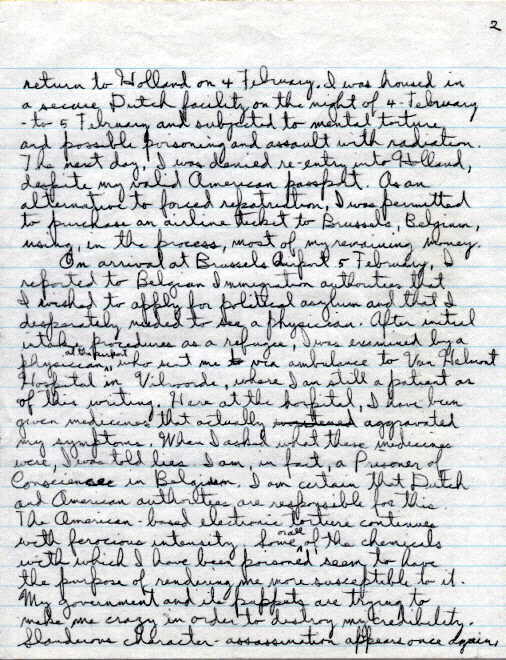 2
return to Holland on 4 February. I was housed in
a secure Dutch facility on the night of 4 February
- to 5 February and subjected to mental torture
and possible poisoning and assault with radiation.
The next day, I was denied re-entry into Holland,
despite my valid American passport. As an
alternative to forced repatriation, I was permitted
to purchase an airline ticket to Brussels, Belgium,
using, in the process, most of my remaining money.
On arrival at Brussels Airport 5 February, I
reported to Belgian Immigration authorities that
I wished to apply for political asylum and that I
desperately needed to see a physician. After initial
intake procedures as a refugee, I was examined by a
physician at the airport, who sent me to via ambulance to Van Helmont
Hospital in Vilvoorde, where I am still a patient as
of this writing. Here at the hospital, I have been
given medicines that actually aggravated
my symptoms. When I asked what these medicines
were, I was told lies. I am, in fact, a Prisoner of
Conscience in Belgium. I am certain that Dutch
and American authorities are responsible for this.
The American-based electronic torture continues
with ferocious intensity. Some or all of the chemicals
with which I have been poisoned seem to have
the purpose of rendering me more susceptible to it.
My government and its puppets are trying to
make me crazy in order to destroy my credibility.
Slanderous character-assassination appears once again,